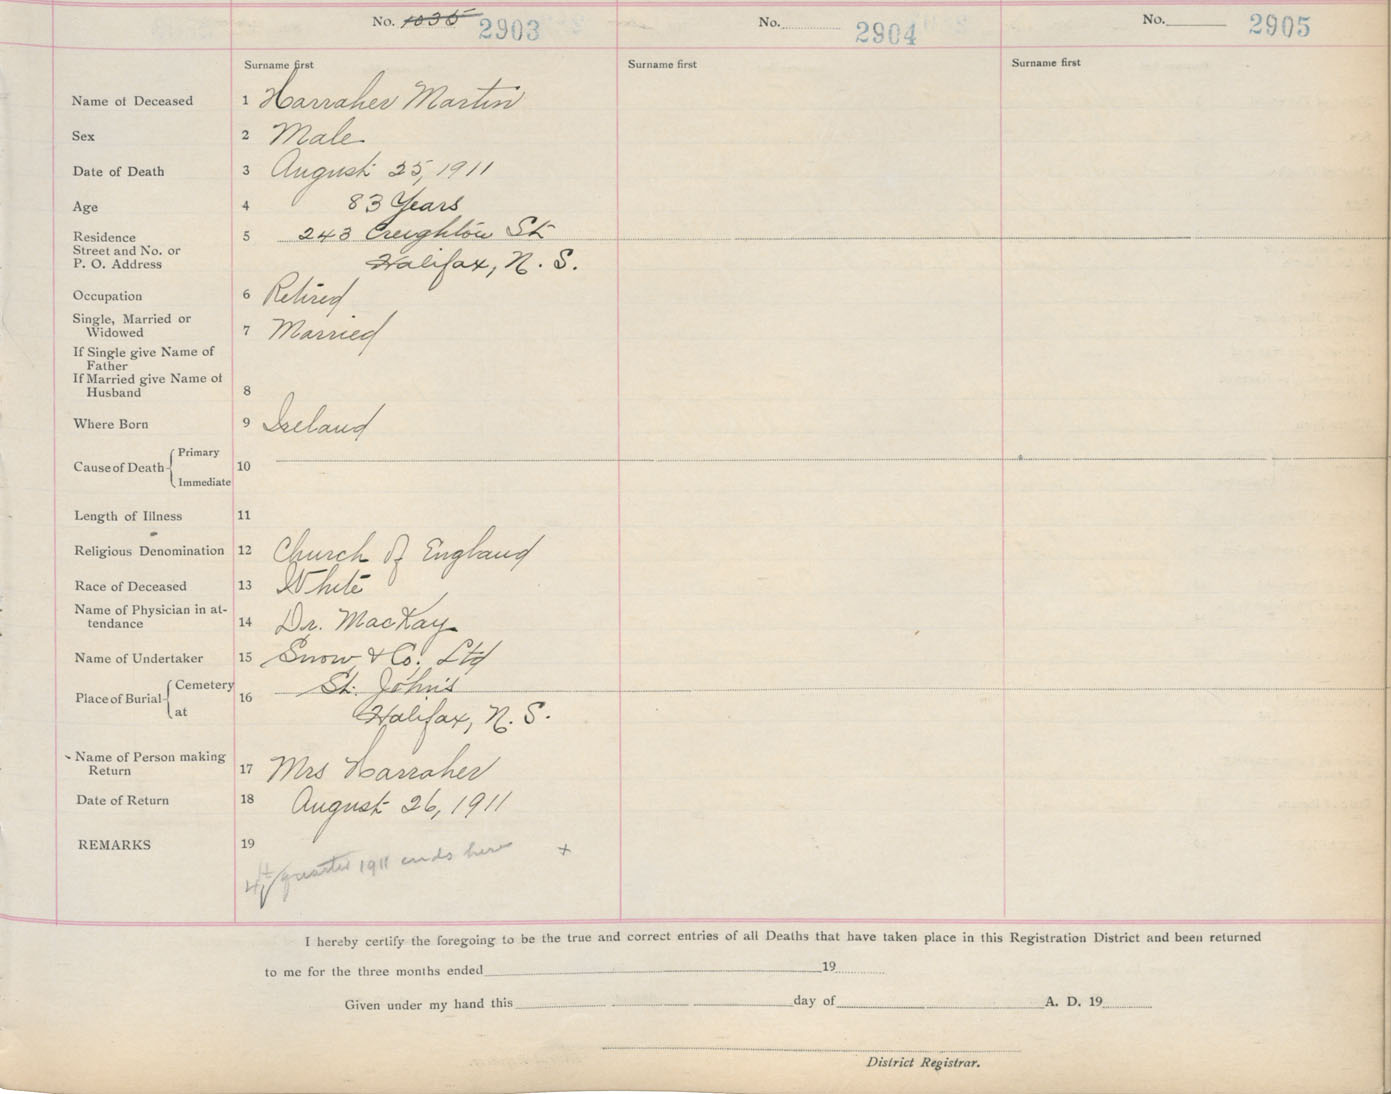 No. 1035 2903
No. 2904
No. 2905
Surname first
Surname first
Surname first
Name of Deceased 1 Harraher Martin
Sex 2 Male
Date of Death 3 August 25, 1911
Age 4 83 Years
Residence 5 243 Creighton St
Street and No. or
P. O. Address Halifax, N. S.
Occupation 6 Retired
Single, Married or
Widowed 7 Married
If Single give Name of
Father
If Married give Name of
Husband 8
Where Born 9 Ireland
Cause of Death Primary
10
Immediate
Length of Illness 11
Religious Denomination 12 Church of England
Race of Deceased 13 White
Name of Physician in at-
tendance 14 Dr. MacKay
Name of Undertaker 15 Snow & Co. Ltd
Place of Burial Cemetery St. John's
16
at Halifax, N. S.
Name of Person making
Return 17 Mrs Harraher
Date of Return 18 August 26, 1911
REMARKS 19
4th quarter 1911 ends here +
I hereby certify the foregoing to be the true and correct entries of all Deaths that have taken place in this Registration District and been returned
to me for the three months ended 19
Given under my hand this day of A. D. 19
District Registrar.